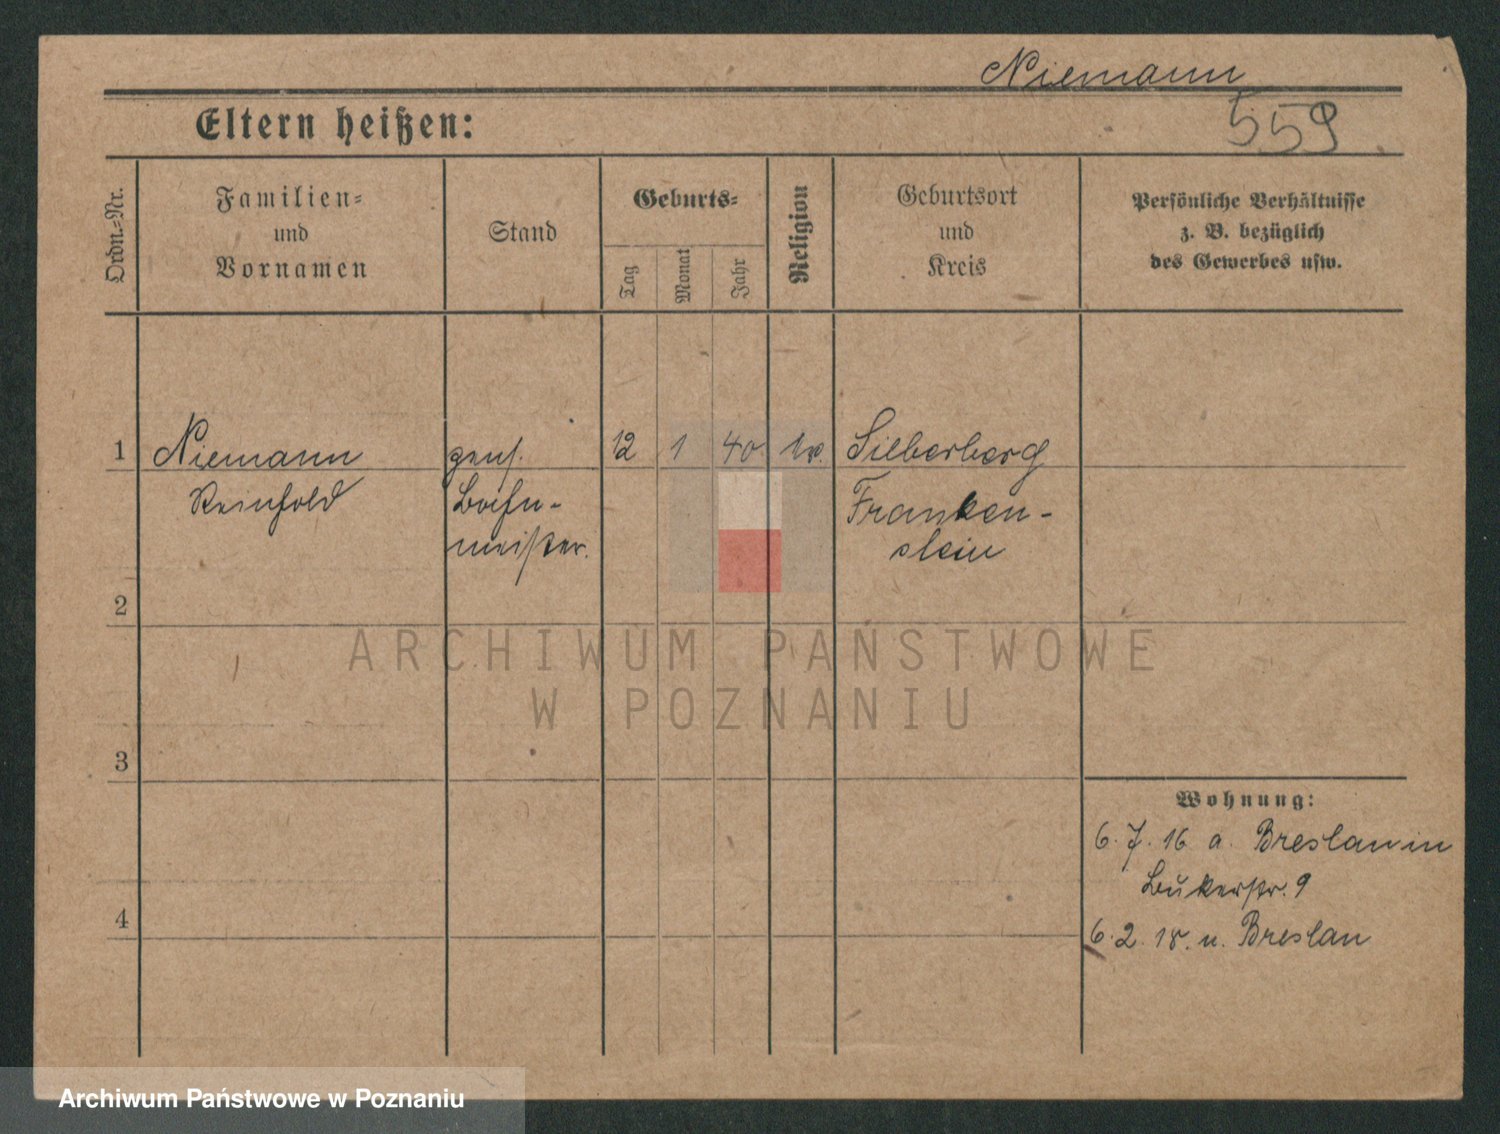 Niemann
559
Eltern heißen:
Ordn.-Nr.
Familien-
und
Vornamen
Stand
Geburts-
Tag
Monat
Jahr
Religion
Geburtsort
und
Kreis
Persönliche Verhältnisse
z. B. bezüglich
des Gewerbes usw.
1
Niemann
Reinhold
pens.
Bahn-
meister.
12
1
40.
ev.
Silberberg
Franken-
stein
2
3
4
ARCHIWUM PAŃSTWOWE
W POZNANIU
Wohnung:
6. 7. 16 a. Breslau in
Bukerstr. 9
6. 2. 18. n. Breslau
Archiwum Państwowe w Poznaniu